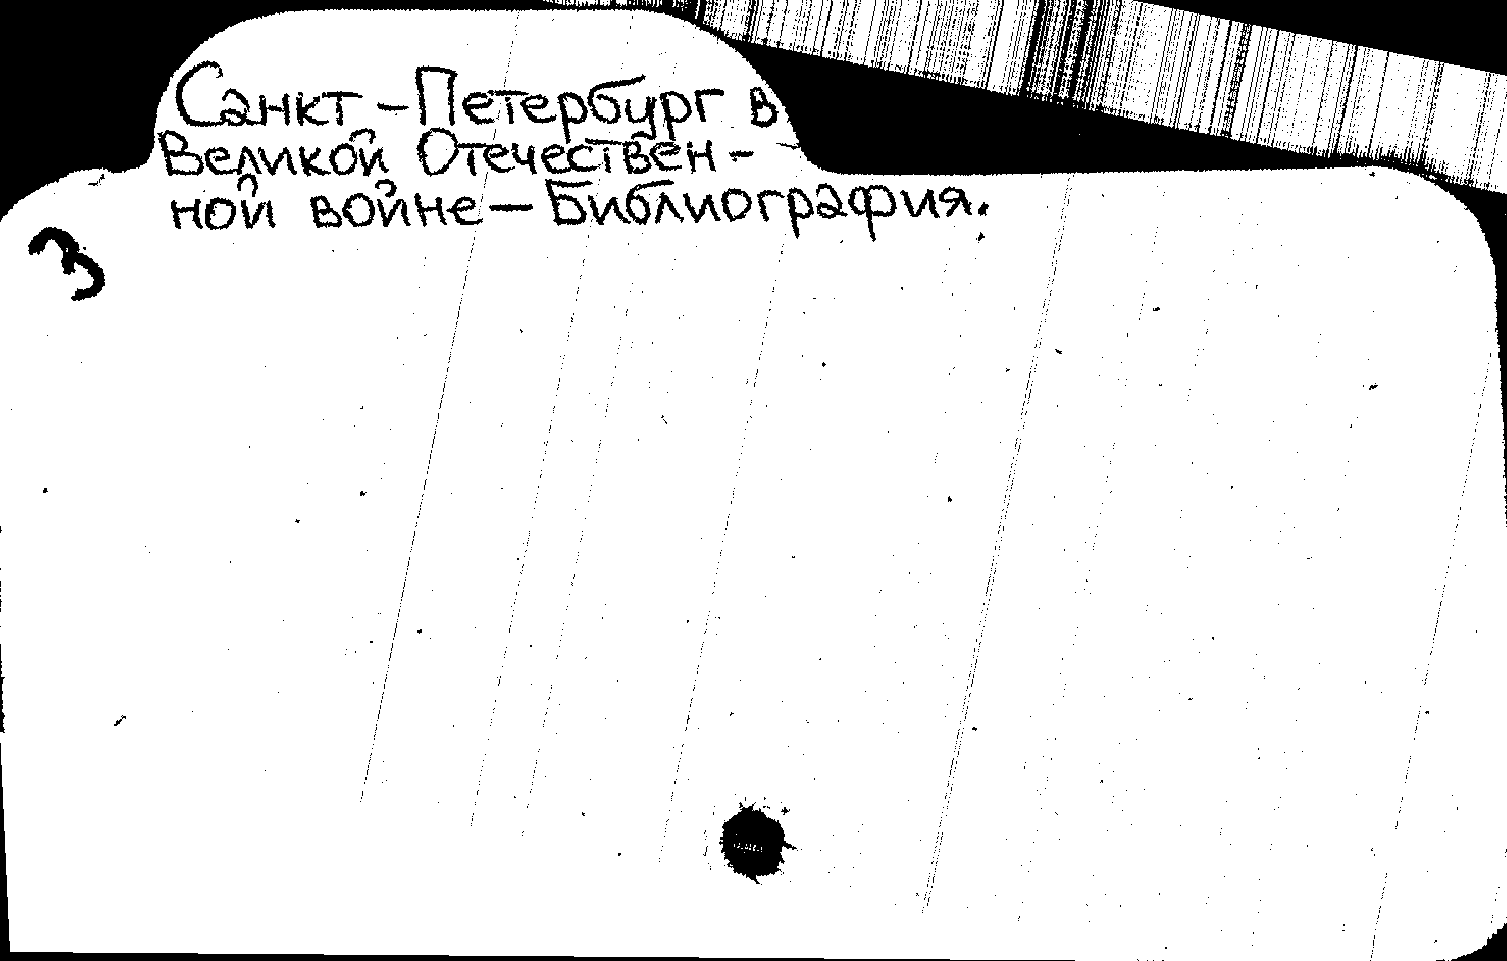 Санкт-Петербург в
Великой Отечествен-
ной войне — Библиография.
3